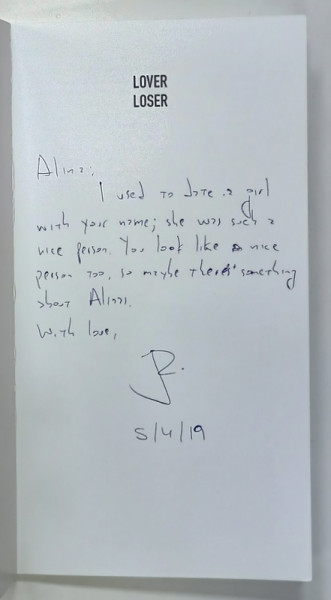 LOVER
LOSER
Alina:
I used to date a girl
with your name; she was such a
nice person. You look like a nice
person too, so maybe there's something
about Alinas.
With love,
5/4/19